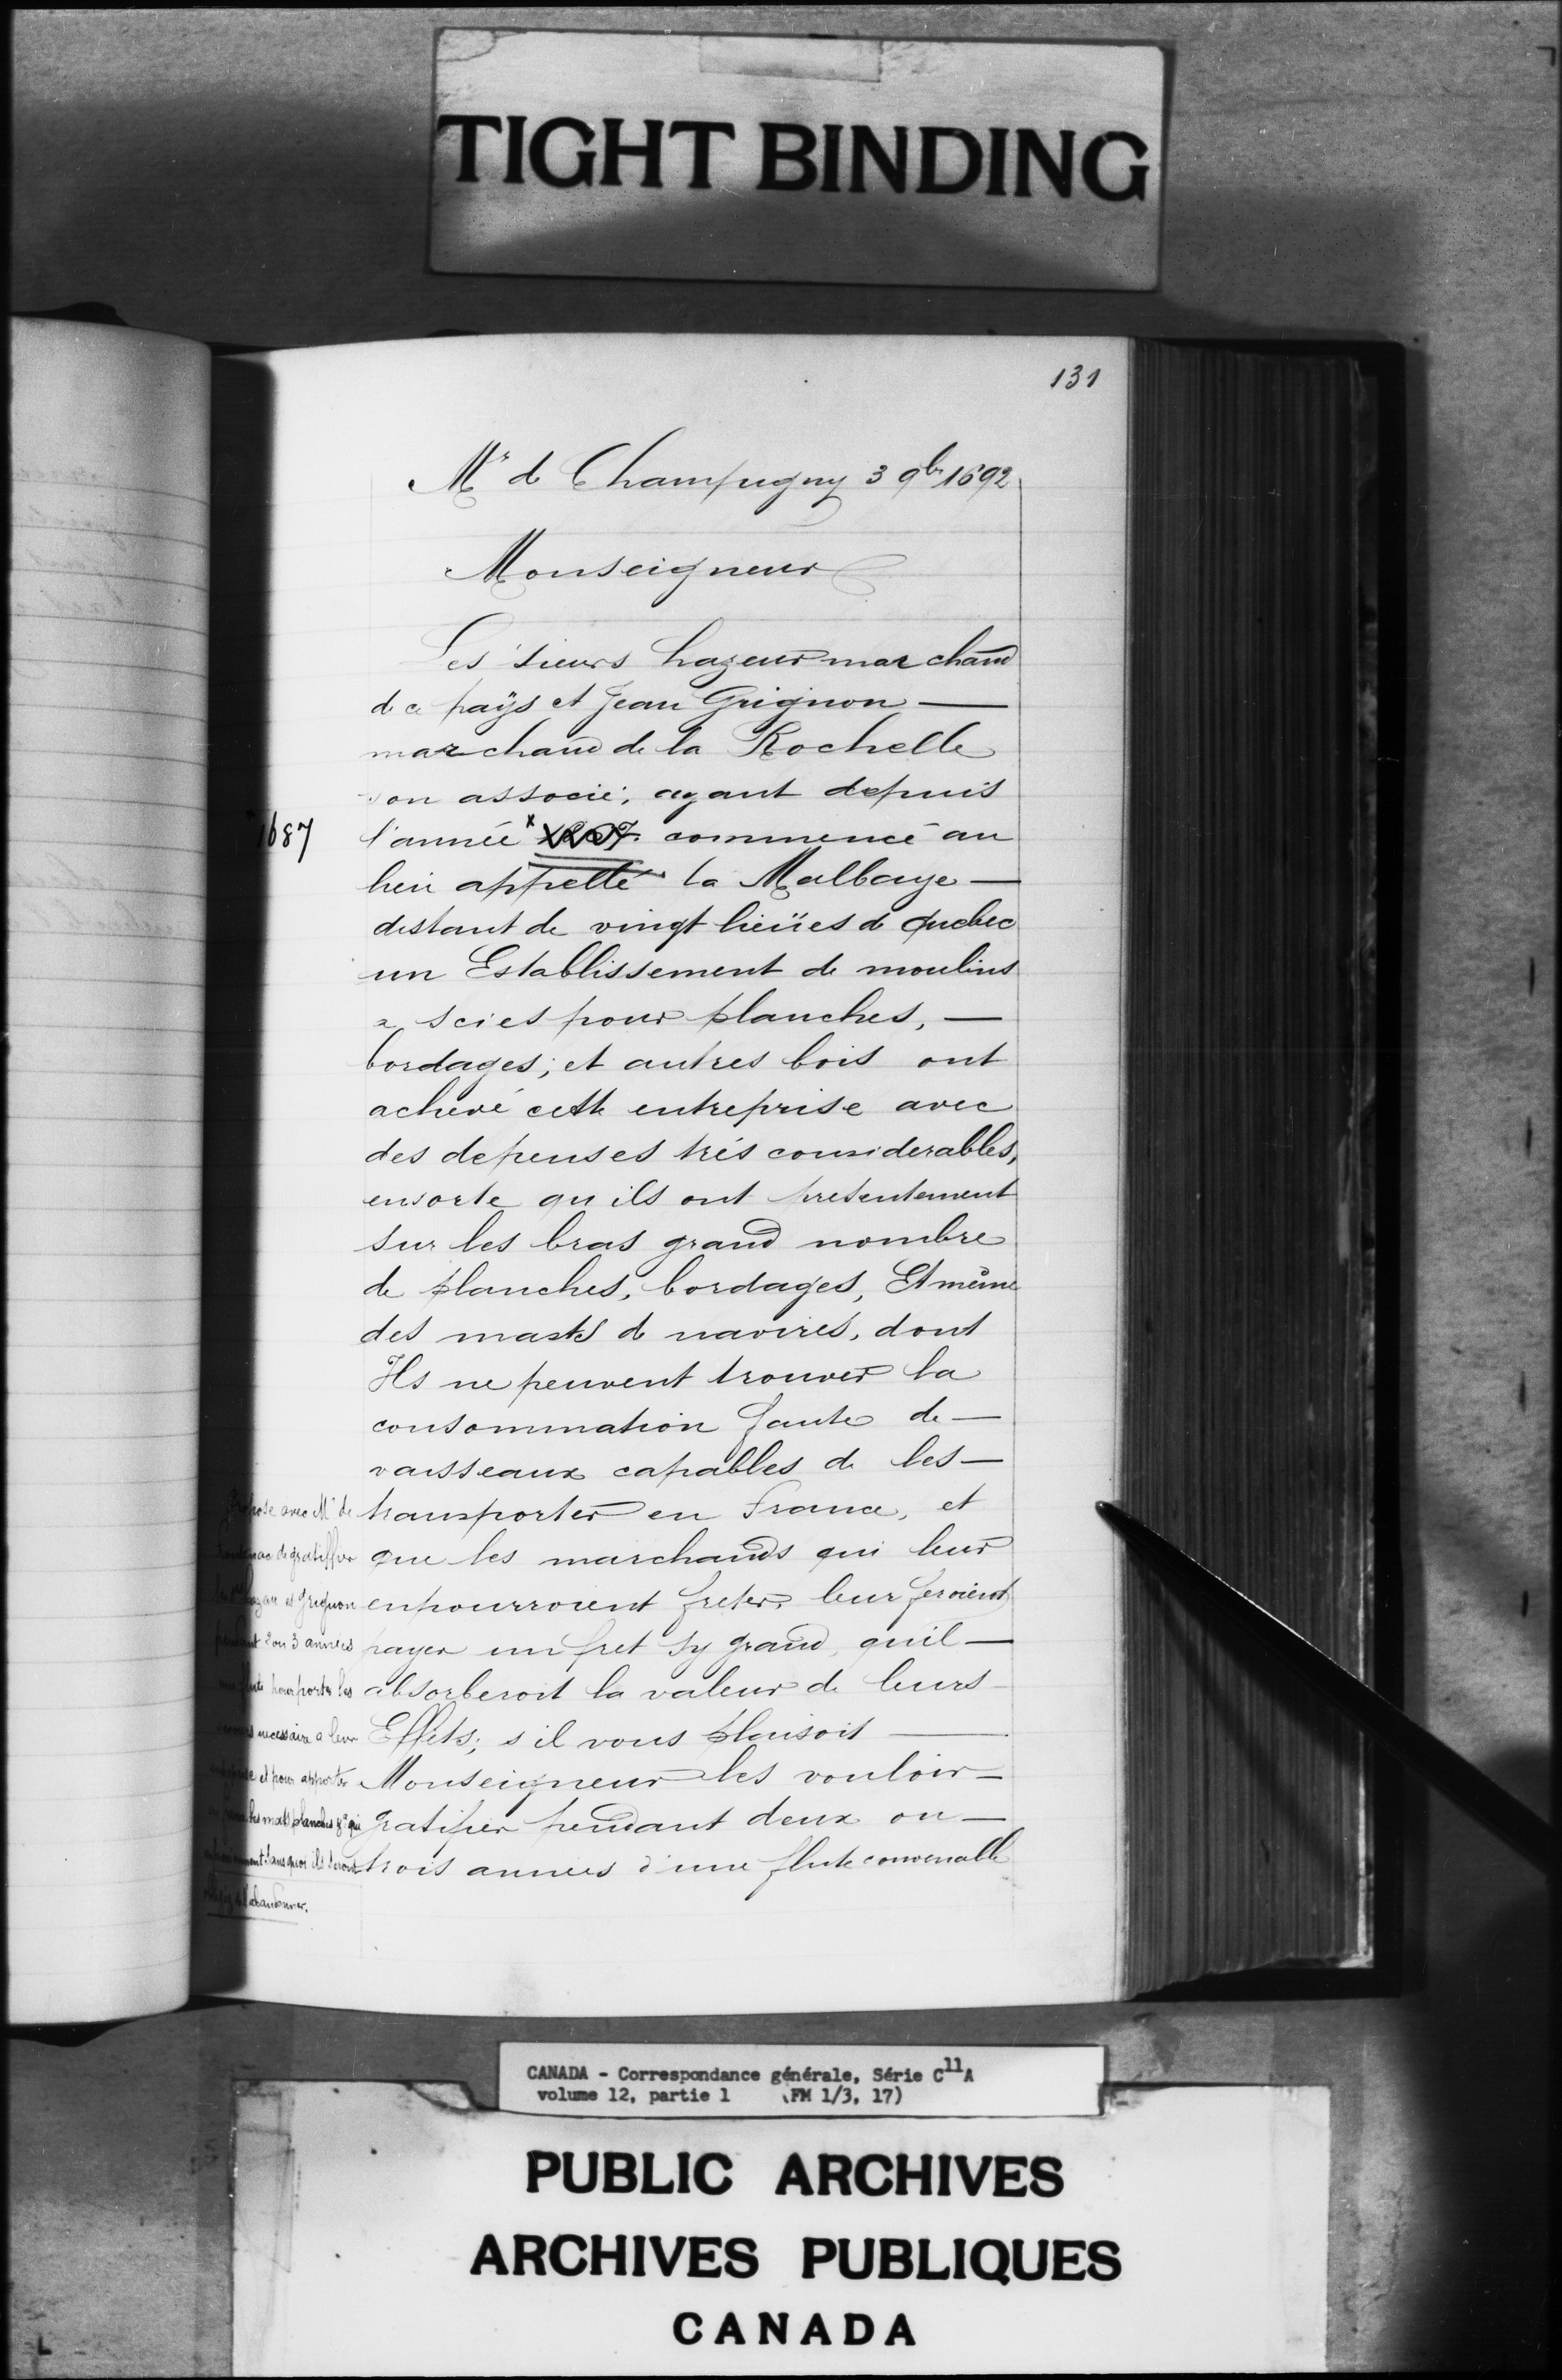 TIGHT BINDING
131
Mr de Champigny 3 9br 1692
Monseigneur
Les sieurs hazeur marchand
de ce païs et Jean Grignon —
marchand de la Rochelle
son associé, ayant depuis
1687
l'année x commencé au
lieu appellé la Malbaye —
distant de vingt lieües de Quebec
un Establissement de moulins
a scies pour planches, —
bordages; et autres bois ont
achevé cette entreprise avec
des depenses trés considerables,
ensorte qu'ils ont presentement
sur les bras grand nombre
de planches, bordages, Et même
des masts de navires, dont
Ils ne peuvent trouver la
consommation faute de —
vaisseaux capables de les —
transporter en France, et
que les marchands qui leur
enpourroient freter, leur feroient
payer un fret sy grand, quil —
absorberoit la valeur de leurs
Effets; s'il vous plaisoit —
Monseigneur les vouloir —
gratifier pendant deux ou —
trois années d'une flute convenable
Propose avec Mr de
de gratiffier
hazeur et Grignon
2 ou 3 années
flute pour porter les
necessaire a leur
et pour apporter
les mats planches &a qui
sans quoi ils seront
l'abandonner.
CANADA - Correspondance générale, Série C11A
volume 12, partie 1 (FM 1/3, 17)
PUBLIC ARCHIVES
ARCHIVES PUBLIQUES
CANADA